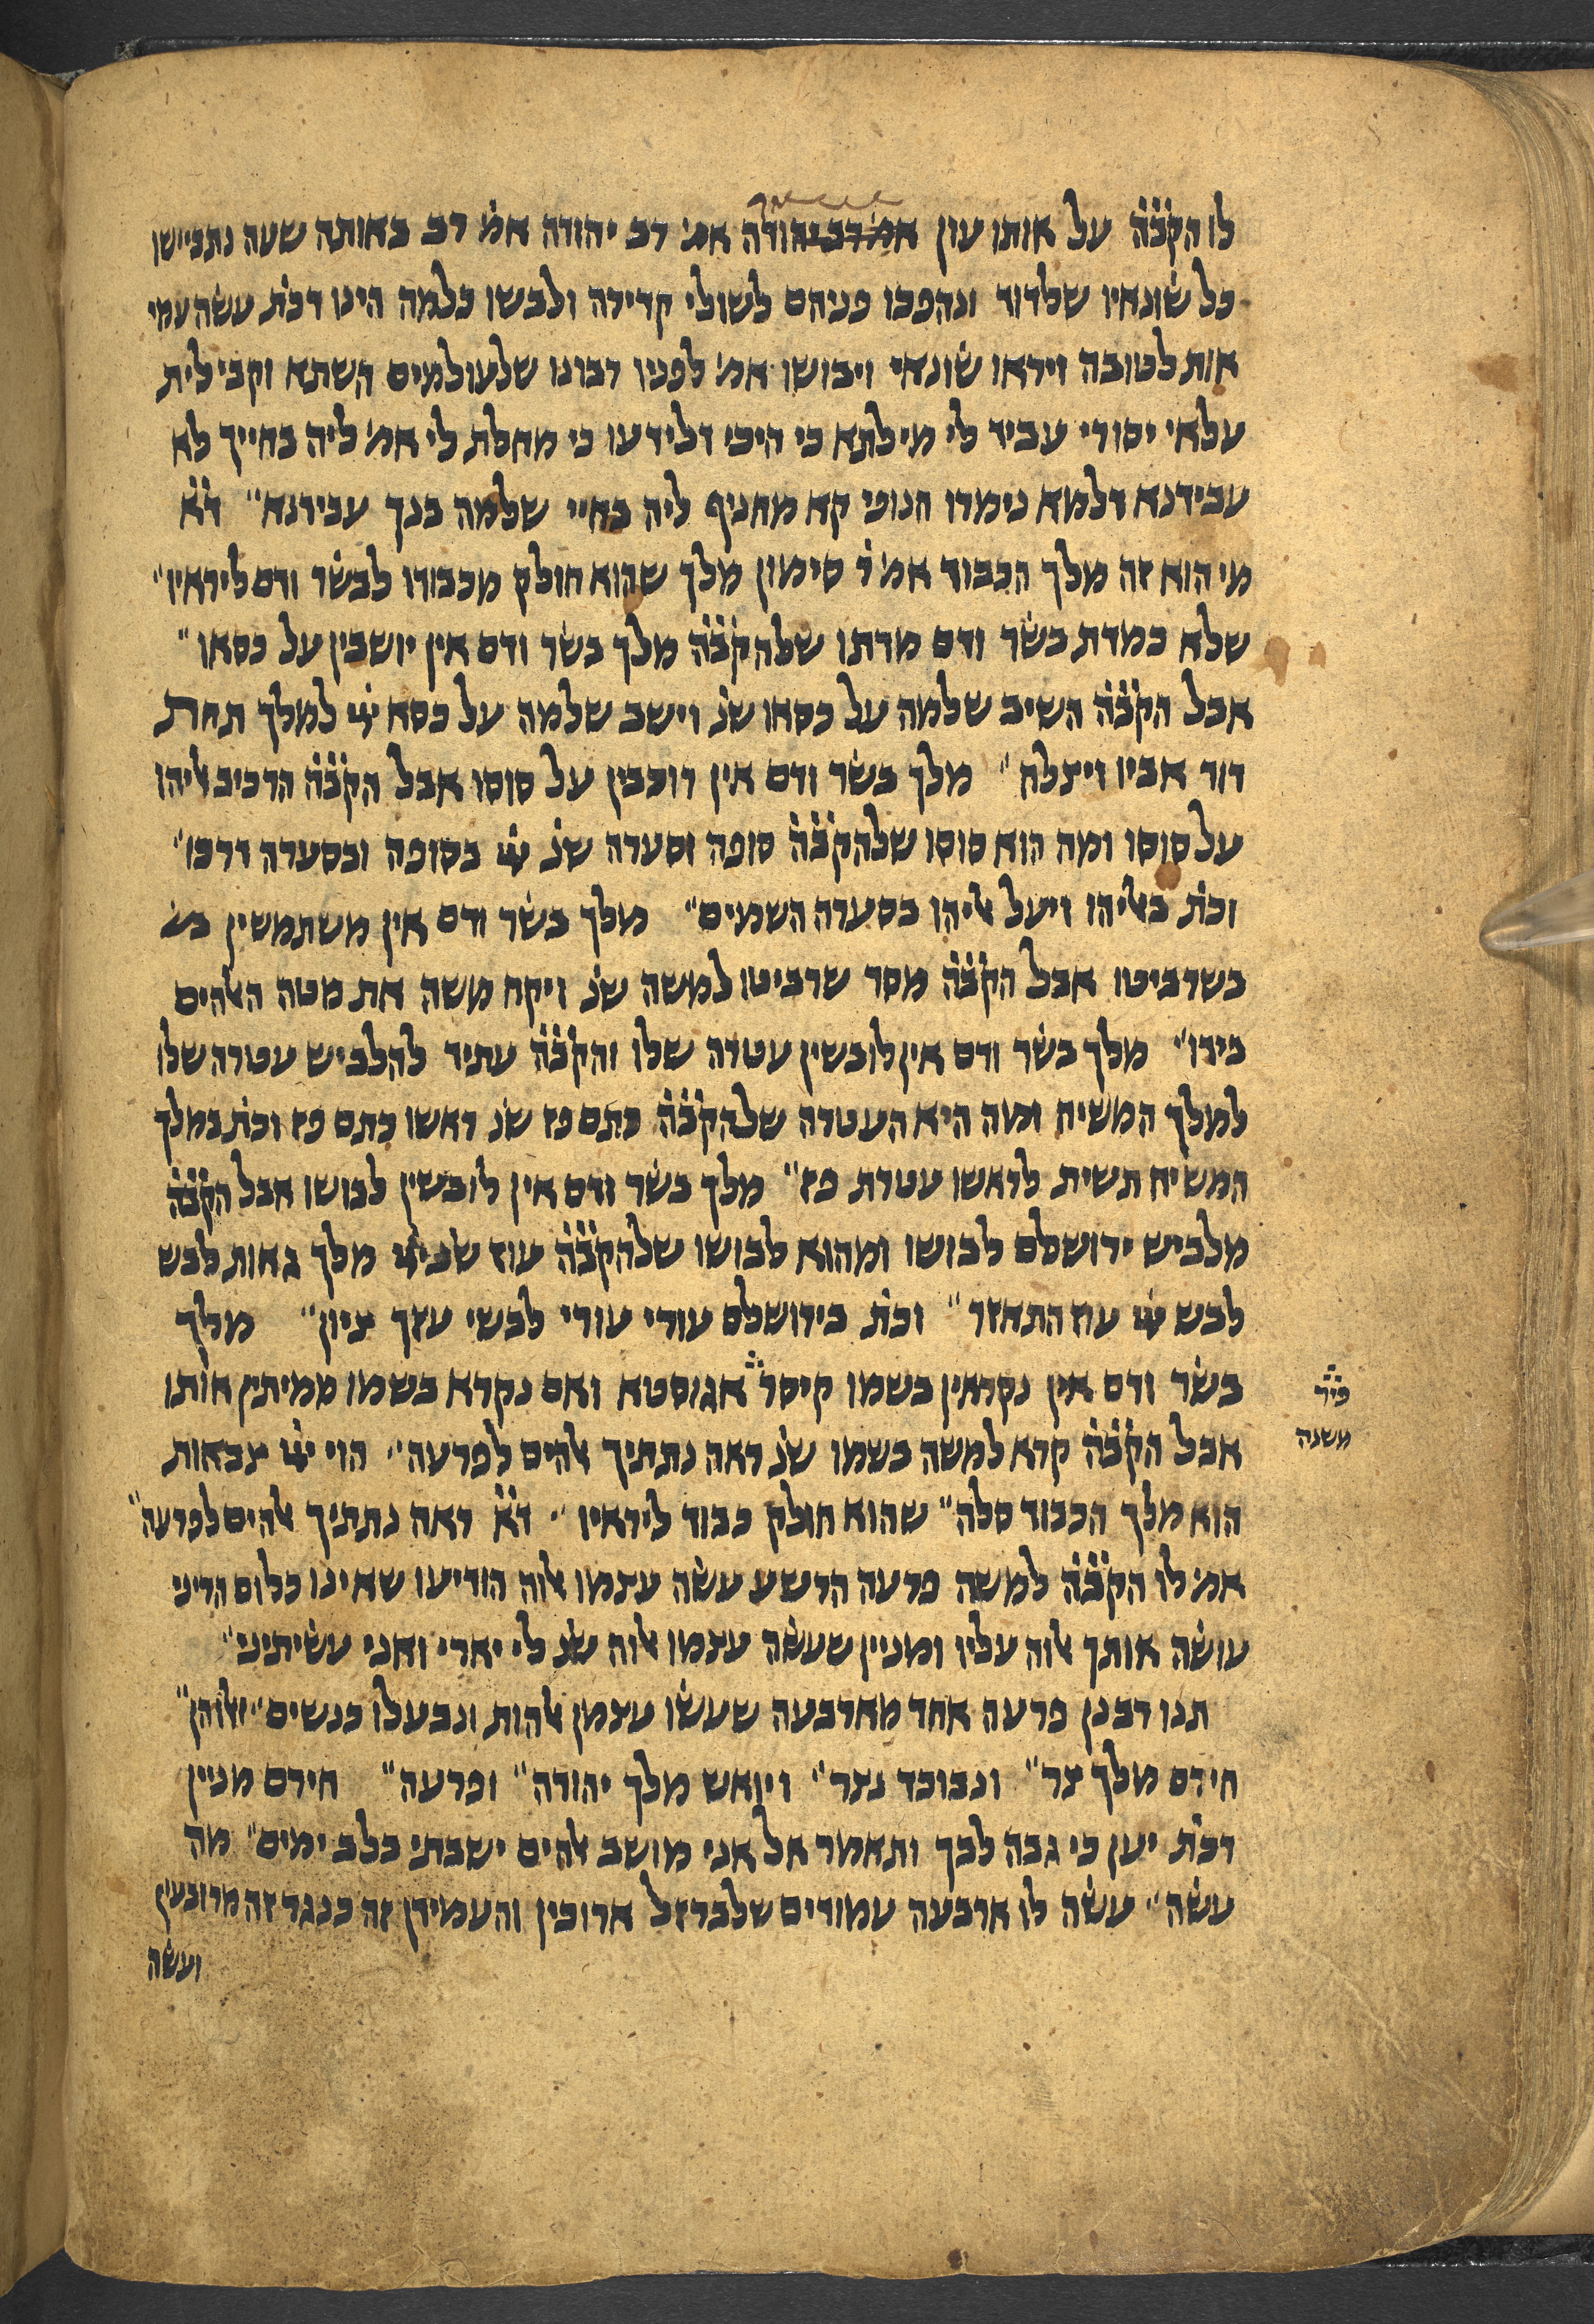 לו הק'ב'ה' על אותו עון אמ' רב יהודה אמ' רב יהודה אמ' רב באותה שעה נתביישו
כל שונאיו שלדוד ונהפכו פניהם לשולי קדירה ולבשו כלמה הינו דכת' עשה עמי
אות לטובה ויראו שונאי ויבושו אמ' לפניו רבונו שלעולמים השתא וקבילית
עלאי יסורי עביד לי מילתא כי היכי דלידעו כי מחלת לי אמ' ליה בחייך לא
עבידנא דלמא נימרו חנופי קא מחניף ליה בחיי שלמה בנך עבידנא" ד'א'
מי הוא זה מלך הכבוד אמ' ר' סימון מלך שהוא חולק מכבודו לבשר ודם ליראיו"
שלא כמדת בשר ודם מדתו שלהק'ב'ה' מלך בשר ודם אין יושבין על כסאו"
אבל הק'ב'ה' השיב שלמה על כסאו שנ' וישב שלמה על כסא ייי למלך תחת
דוד אביו ויצלח" מלך בשר ודם אין רוכבין על סוסו אבל הק'ב'ה' הרכיב אליהו
על סוסו ומה הוא סוסו שלהק'ב'ה' סופה וסערה שנ' ייי בסופה ובסערה דרכו"
וכת' באליהו ויעל אליהו בסערה השמים" מלך בשר ודם אין משתמשין בש
בשרביטו אבל הק'ב'ה' מסר שרביטו למשה שנ' ויקח משה את מטה האלהים
בידו" מלך בשר ודם אין לובשין עטרה שלו והק'ב'ה' עתיד להלביש עטרה שלו
למלך המשיח ומה היא העטרה שלהק'ב'ה' כתם פז שנ' ראשו כתם פז וכת' במלך
המשיח תשית לראשו עטרת פז" מלך בשר ודם אין לובשין לבושו אבל הק'ב'ה'
מלביש ירושלם לבושו ומהוא לבושו שלהק'ב'ה' עוז שנ' ייי מלך גאות לבש
לבש ייי עוז התאזר" וכת' בירושלם עורי עורי לבשי עזך ציון" מלך
בשר ודם אין נקראין בשמו קיסר אגוסטא ואם נקרא בשמו ממיתין אותו
פי'ר'
משנה
אבל הק'ב'ה' קרא למשה בשמו שנ' ראה נתתיך אלהים לפרעה" הוי ייי צבאות
הוא מלך הכבוד סלה" שהוא חולק כבוד ליראיו" ד'א' ראה נתתיך אלהים לפרעה"
אמ' לו הק'ב'ה' למשה פרעה הרשע עשה עצמו אלוה הודיעו שאינו כלום הריני
עושה אותך אלוה עליו ומניין שעשה עצמו אלוה שנ' לי יארי ואני עשיתיני"
תנו רבנן פרעה אחד מארבעה שעשו עצמן אלהות ונבעלו כנשים" ואלו הן"
חירם מלך צר" ונבוכד נצר" ויואש מלך יהודה" ופרעה" חירם מניין
דכת' יען כי גבה לבך ותאמר אל אני מושב אלהים ישבתי בלב ימים" מה
עשה" עשה לו ארבעה עמודים שלברזל ארוכין והעמידן זה כנגד זה מרובעין
ועשה